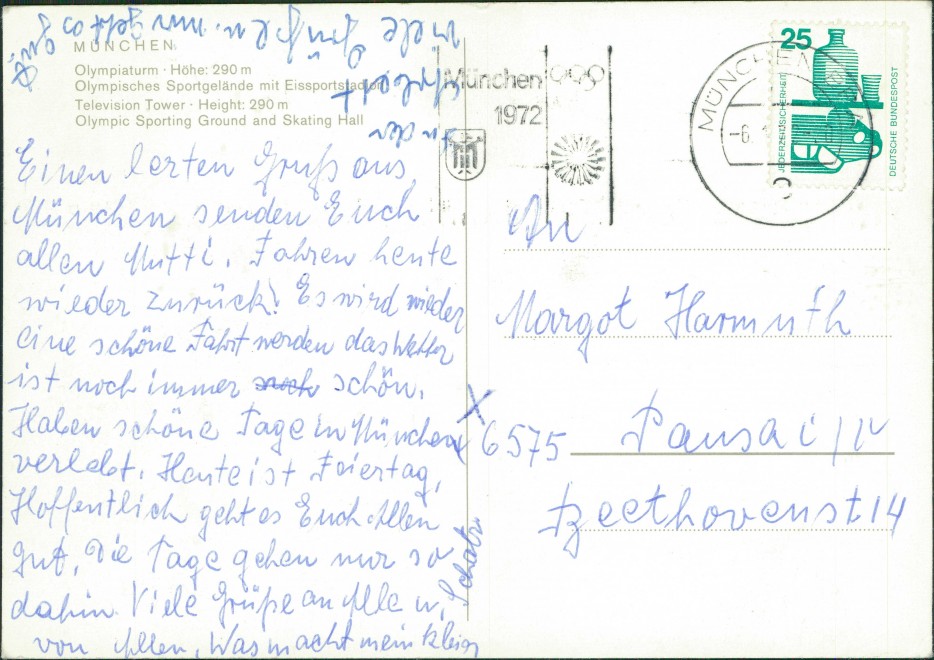 MÜNCHEN
Olympiaturm · Höhe: 290 m
Olympisches Sportgelände mit Eissportstadion
Television Tower · Height: 290 m
Olympic Sporting Ground and Skating Hall
Einen lerten Gruß aus
München senden Euch
allen Mutti. Fahren heute
wieder zurück! Es wird wieder
eine schöne Fahrt werden das Wetter
ist noch immer schön.
Haben schöne Tage in München
verlebt. Heute ist Feiertag,
Hoffentlich geht es Euch Allen
gut, Die Tage gehen nur so
dahin. Viele Grüße an Alle u,
von Allen, Was macht mein kleier
Schatz
München
1972
MÜNCHEN
25
JEDERZEIT SICHERHEIT
DEUTSCHE BUNDESPOST
An
Margot Harmuth
6575 Pausa i/V
Beethovenst 14